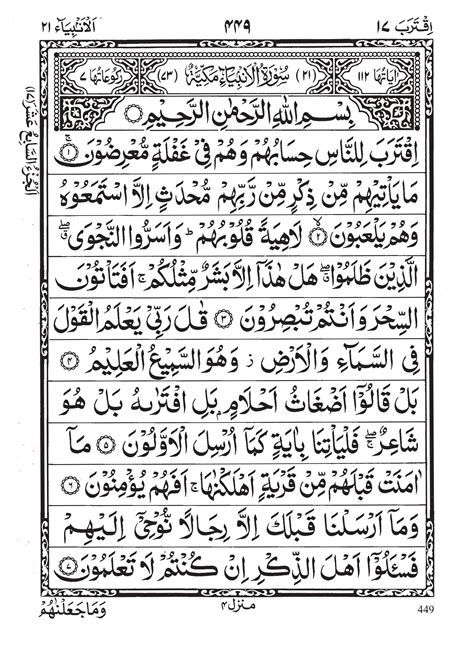 اِقْتَرَبَ ١٧ ٤٤٩ اَلْاَنْۢبِيَآء ٢١
اٰيَاتُهَا ١١٢ (٢١) سُوْرَةُ الْاَنْۢبِيَآءِ مَكِّيَّةٌ (٧٣) رُكُوْعَاتُهَا ٧
بِسْمِ اللّٰهِ الرَّحْمٰنِ الرَّحِيْمِ
اِقْتَرَبَ لِلنَّاسِ حِسَابُهُمْ وَهُمْ فِيْ غَفْلَةٍ مُّعْرِضُوْنَ ۚ ١
مَا يَاْتِيْهِمْ مِّنْ ذِكْرٍ مِّنْ رَّبِّهِمْ مُّحْدَثٍ اِلَّا اسْتَمَعُوْهُ
وَهُمْ يَلْعَبُوْنَ ۙ ٢ لَاهِيَةً قُلُوْبُهُمْ ؕ وَاَسَرُّوا النَّجْوَى ۖۗ
الَّذِيْنَ ظَلَمُوْا ۖۗ هَلْ هٰذَآ اِلَّا بَشَرٌ مِّثْلُكُمْ ۚ اَفَتَاْتُوْنَ
السِّحْرَ وَاَنْتُمْ تُبْصِرُوْنَ ٣ قٰلَ رَبِّيْ يَعْلَمُ الْقَوْلَ
فِي السَّمَآءِ وَالْاَرْضِ ز وَهُوَ السَّمِيْعُ الْعَلِيْمُ ٤
بَلْ قَالُوْٓا اَضْغَاثُ اَحْلَامٍۭ بَلِ افْتَرٰىهُ بَلْ هُوَ
شَاعِرٌ ۖۚ فَلْيَاْتِنَا بِاٰيَةٍ كَمَآ اُرْسِلَ الْاَوَّلُوْنَ ٥ مَآ
اٰمَنَتْ قَبْلَهُمْ مِّنْ قَرْيَةٍ اَهْلَكْنٰهَا ۚ اَفَهُمْ يُؤْمِنُوْنَ ٦
وَمَآ اَرْسَلْنَا قَبْلَكَ اِلَّا رِجَالًا نُّوْحِيْٓ اِلَيْهِمْ
فَسْـَٔلُوْٓا اَهْلَ الذِّكْرِ اِنْ كُنْتُمْ لَا تَعْلَمُوْنَ ٧
449 منزل ٤ وَمَا جَعَلْنٰهُمْ
اَلْجُزْءُ السَّابِعُ عَشَرَ (١٧)